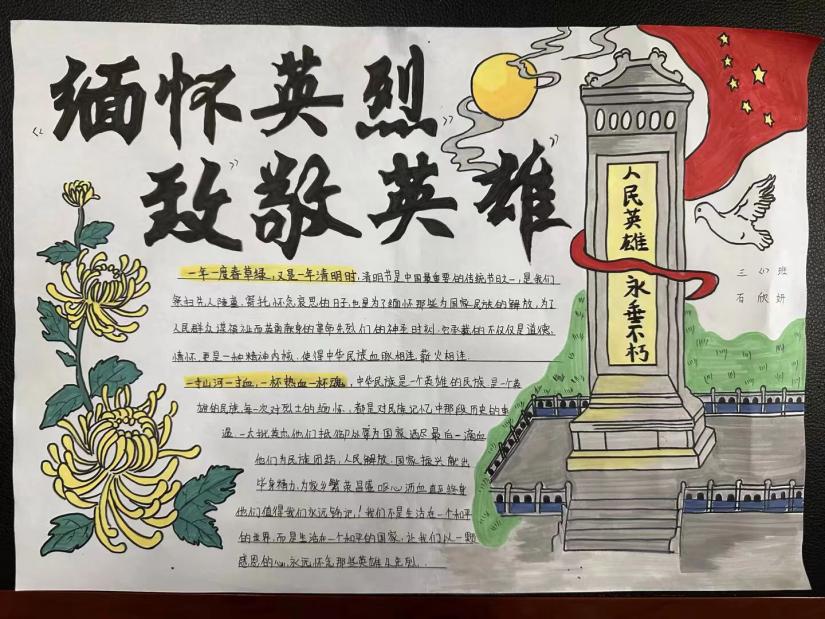 《缅怀英烈》
"致敬英雄"
人民英雄永垂不朽
三(1)班
石欣妍
一年一度春草绿，又是一年清明时，清明节是中国最重要的传统节日之一，是我们
祭扫先人陵墓，寄托怀念哀思的日子，也是为了缅怀那些为国家民族的解放，为了
人民群众谋福祉而英勇献身的革命先烈们的神圣时刻，它承载的不仅仅是道德、
情怀，更是一种精神内核，使得中华民族血脉相连，薪火相连.
一寸山河一寸血，一杯热血一杯魂，中华民族是个英雄的民族，是个英
雄的民族，每一次对烈士的缅怀，都是对民族记忆中那段历史的重
温，一大批英杰他们抵御外辱为国家洒尽最后一滴血
他们为民族团结，人民解放，国家振兴献出
毕身精力，为家乡繁荣昌盛呕心沥血直至终章
他们值得我们永远铭记！我们不是生活在一个和平
的世界，而是生活在一个和平的国家，让我们以一颗
感恩的心，永远怀念那些英雄与先烈..